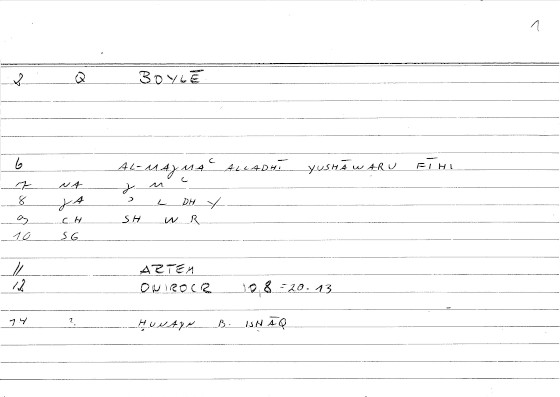 1
2 Q BOYLĒ
6 AL-MAǧMAᶜ ALLADHĪ YUSHĀWARU FĪHI
7 NA ǧ M ᶜ
8 ǧA ʾ L DH Y
9 CH SH W R
10 SG
11 ARTEM
12 ONIROCR 10,8 = 20.13
14 ? ḤUNAYN B. ISḤĀQ